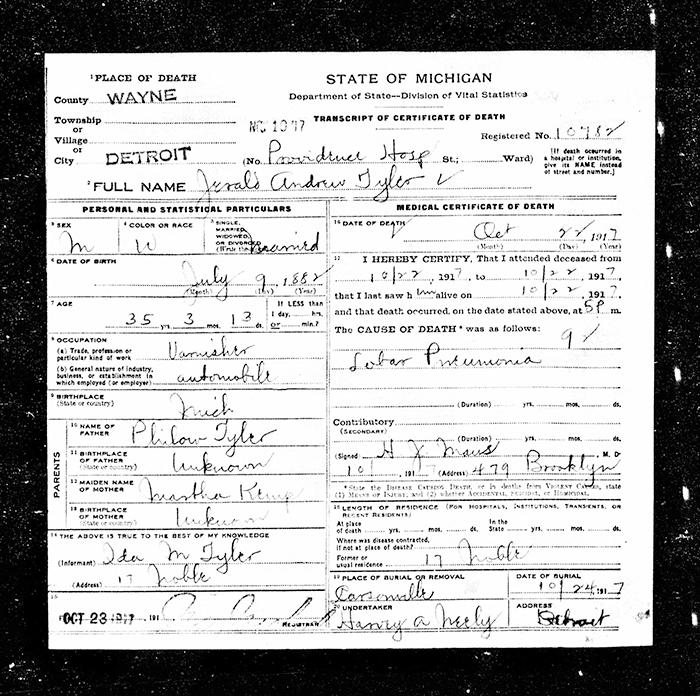 STATE OF MICHIGAN
Department of State--Division of Vital Statistics
TRANSCRIPT OF CERTIFICATE OF DEATH
1 PLACE OF DEATH
County WAYNE
Township
or
Village
or
City DETROIT
1917
Registered No. 10782
(No. Providence Hosp St.; Ward)
[If death occurred in a hospital or institution, give its NAME instead of street and number.]
2 FULL NAME Jerald Andrew Tyler
PERSONAL AND STATISTICAL PARTICULARS
3 SEX
M
4 COLOR OR RACE
W
5 SINGLE, MARRIED, WIDOWED, OR DIVORCED
(Write the word)
Married
6 DATE OF BIRTH
July 9, 1882
(Month) (Day) (Year)
7 AGE
35 yrs. 3 mos. 13 ds.
If LESS than
1 day, hrs.
or min.?
8 OCCUPATION
(a) Trade, profession or particular kind of work Varnisher
(b) General nature of industry, business, or establishment in which employed (or employer) automobile
9 BIRTHPLACE
(State or country)
Mich
PARENTS
10 NAME OF FATHER
Philow Tyler
11 BIRTHPLACE OF FATHER
(State or country)
Unknown
12 MAIDEN NAME OF MOTHER
Martha Kemp
13 BIRTHPLACE OF MOTHER
(State or country)
Unknown
14 THE ABOVE IS TRUE TO THE BEST OF MY KNOWLEDGE
(Informant) Ida M Tyler
(Address) 17 Noble
15
OCT 23 1917 191
REGISTRAR
MEDICAL CERTIFICATE OF DEATH
16 DATE OF DEATH
Oct 22 1917
(Month) (Day) (Year)
17 I HEREBY CERTIFY, That I attended deceased from
10/22, 1917, to 10/22, 1917,
that I last saw him alive on 10/22, 1917,
and that death occurred, on the date stated above, at 5P m.
The CAUSE OF DEATH* was as follows:
92
Lobar Pneumonia
(Duration) yrs. mos. ds.
Contributory
(SECONDARY)
(Duration) yrs. mos. ds.
(Signed) H J Maus, M. D.
10/ 1917 (Address) 479 Brooklyn
*State the DISEASE CAUSING DEATH, or in deaths from VIOLENT CAUSES, state
(1) MEANS OF INJURY; and (2) whether ACCIDENTAL, SUICIDAL, or HOMICIDAL.
18 LENGTH OF RESIDENCE (FOR HOSPITALS, INSTITUTIONS, TRANSIENTS, OR RECENT RESIDENTS)
At place of death yrs. mos. ds. In the State yrs. mos. ds.
Where was disease contracted, if not at place of death?
Former or usual residence 17 Noble
19 PLACE OF BURIAL OR REMOVAL
Carsonville
DATE OF BURIAL
10/24, 1917
20 UNDERTAKER
Harvey A Neely
ADDRESS
Detroit